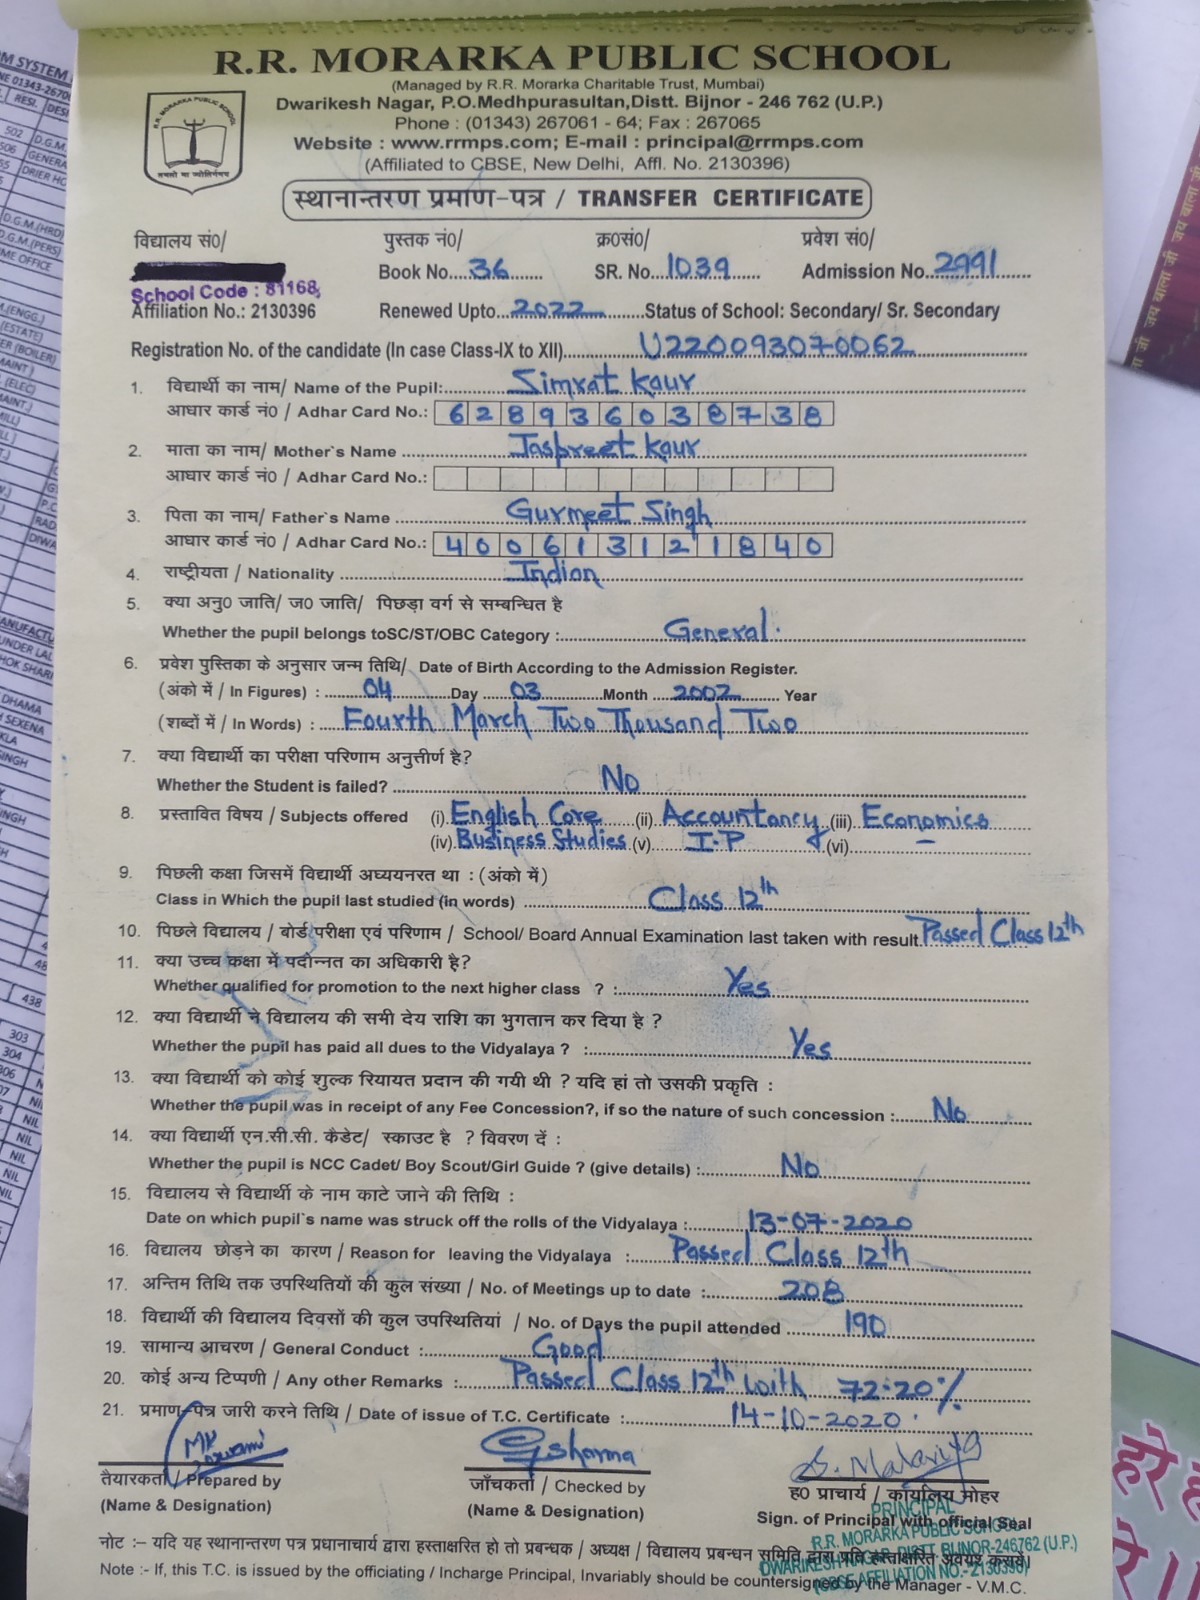 R.R. MORARKA PUBLIC SCHOOL
(Managed by R.R. Morarka Charitable Trust, Mumbai)
Dwarikesh Nagar, P.O.Medhpurasultan,Distt. Bijnor - 246 762 (U.P.)
Phone : (01343) 267061 - 64; Fax : 267065
Website : www.rrmps.com; E-mail : principal@rrmps.com
(Affiliated to CBSE, New Delhi, Affl. No. 2130396)
R.R. MORARKA PUBLIC SCHOOL
तमसो मा ज्योतिर्गमय
स्थानान्तरण प्रमाण-पत्र / TRANSFER CERTIFICATE
विद्यालय सं0/ पुस्तक नं0/ क्र0सं0/ प्रवेश सं0/
Book No....36....... SR. No...1039..... Admission No..2991......
School Code : 81168,
Affiliation No.: 2130396 Renewed Upto...2022.........Status of School: Secondary/ Sr. Secondary
Registration No. of the candidate (In case Class-IX to XII)............U220093070062............
1. विद्यार्थी का नाम/ Name of the Pupil:............Simrat Kaur............
आधार कार्ड नं0 / Adhar Card No.: 628936038738
2. माता का नाम/ Mother`s Name ............Jaspreet Kaur............
आधार कार्ड नं0 / Adhar Card No.:
3. पिता का नाम/ Father`s Name ............Gurmeet Singh............
आधार कार्ड नं0 / Adhar Card No.: 400613121840
4. राष्ट्रीयता / Nationality ............Indian............
5. क्या अनु0 जाति/ ज0 जाति/ पिछड़ा वर्ग से सम्बन्धित है
Whether the pupil belongs toSC/ST/OBC Category :............General.............
6. प्रवेश पुस्तिका के अनुसार जन्म तिथि/ Date of Birth According to the Admission Register.
(अंको में / In Figures) : ......04......Day ...03......Month ...2002...... Year
(शब्दों में / In Words) : ...Fourth March Two Thousand Two............
7. क्या विद्यार्थी का परीक्षा परिणाम अनुत्तीर्ण है?
Whether the Student is failed? ............No............
8. प्रस्तावित विषय / Subjects offered (i).English Core......(ii).Accountancy.(iii) Economics
(iv).Business Studies.(v)......I.P......(vi)............
9. पिछली कक्षा जिसमें विद्यार्थी अध्ययनरत था : (अंको में)
Class in Which the pupil last studied (in words) ............Class 12th............
10. पिछले विद्यालय / बोर्ड परीक्षा एवं परिणाम / School/ Board Annual Examination last taken with result.Passed Class 12th
11. क्या उच्च कक्षा में पदोन्नत का अधिकारी है?
Whether qualified for promotion to the next higher class ? :............Yes............
12. क्या विद्यार्थी ने विद्यालय की सभी देय राशि का भुगतान कर दिया है ?
Whether the pupil has paid all dues to the Vidyalaya ? :............Yes............
13. क्या विद्यार्थी को कोई शुल्क रियायत प्रदान की गयी थी ? यदि हां तो उसकी प्रकृति :
Whether the pupil was in receipt of any Fee Concession?, if so the nature of such concession :......No......
14. क्या विद्यार्थी एन.सी.सी. कैडेट/ स्काउट है ? विवरण दें :
Whether the pupil is NCC Cadet/ Boy Scout/Girl Guide ? (give details) :............No............
15. विद्यालय से विद्यार्थी के नाम काटे जाने की तिथि :
Date on which pupil`s name was struck off the rolls of the Vidyalaya :......13-07-2020......
16. विद्यालय छोड़ने का कारण / Reason for leaving the Vidyalaya :......Passed Class 12th......
17. अन्तिम तिथि तक उपस्थितियों की कुल संख्या / No. of Meetings up to date :......208......
18. विद्यार्थी की विद्यालय दिवसों की कुल उपस्थितियां / No. of Days the pupil attended ......190......
19. सामान्य आचरण / General Conduct :............Good............
20. कोई अन्य टिप्पणी / Any other Remarks :......Passed Class 12th with 72.20%
21. प्रमाण-पत्र जारी करने तिथि / Date of issue of T.C. Certificate :......14-10-2020.......
Gsharma
तैयारकर्ता / Prepared by जाँचकर्ता / Checked by ह0 प्राचार्य / कार्यालय मोहर
(Name & Designation) (Name & Designation) Sign. of Principal with official Seal
PRINCIPAL
R.R. MORARKA PUBLIC SCHOOL
DWARIKESH NAGAR, DISTT BIJNOR-246762 (U.P.)
(CBSE AFFILIATION NO.-2130396)
नोट :– यदि यह स्थानान्तरण पत्र प्रधानाचार्य द्वारा हस्ताक्षरित हो तो प्रबन्धक / अध्यक्ष / विद्यालय प्रबन्धन समिति द्वारा प्रति हस्ताक्षरित अवश्य करायें।
Note :- If, this T.C. is issued by the officiating / Incharge Principal, Invariably should be countersigned by the Manager - V.M.C.